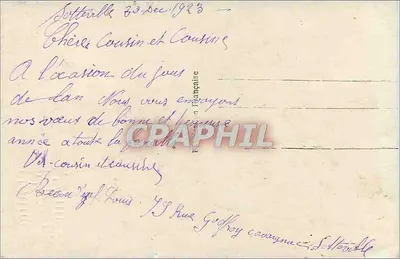 Sotteville 30 Dec 1923
Chères Cousin et Cousine
A l'ocasion du jour
de lan Nous vous envoyons
nos vœux de bonne et heureuse
année a toute la famille
Vos cousin et cousine
75 Rue Godfroy cavaignac Sotteville
Française
CPAPHIL